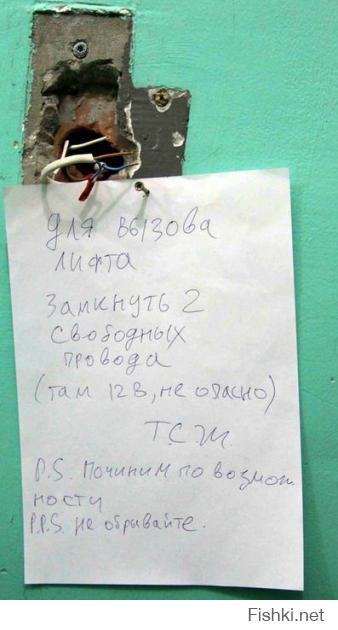 Для вызова
лифта
Замкнуть 2
свободных
провода
(там 12В, не опасно)
Т.С.Ж.
P.S. Починим по возмож
ности
P.P.S. не обрывайте.
Fishki.net